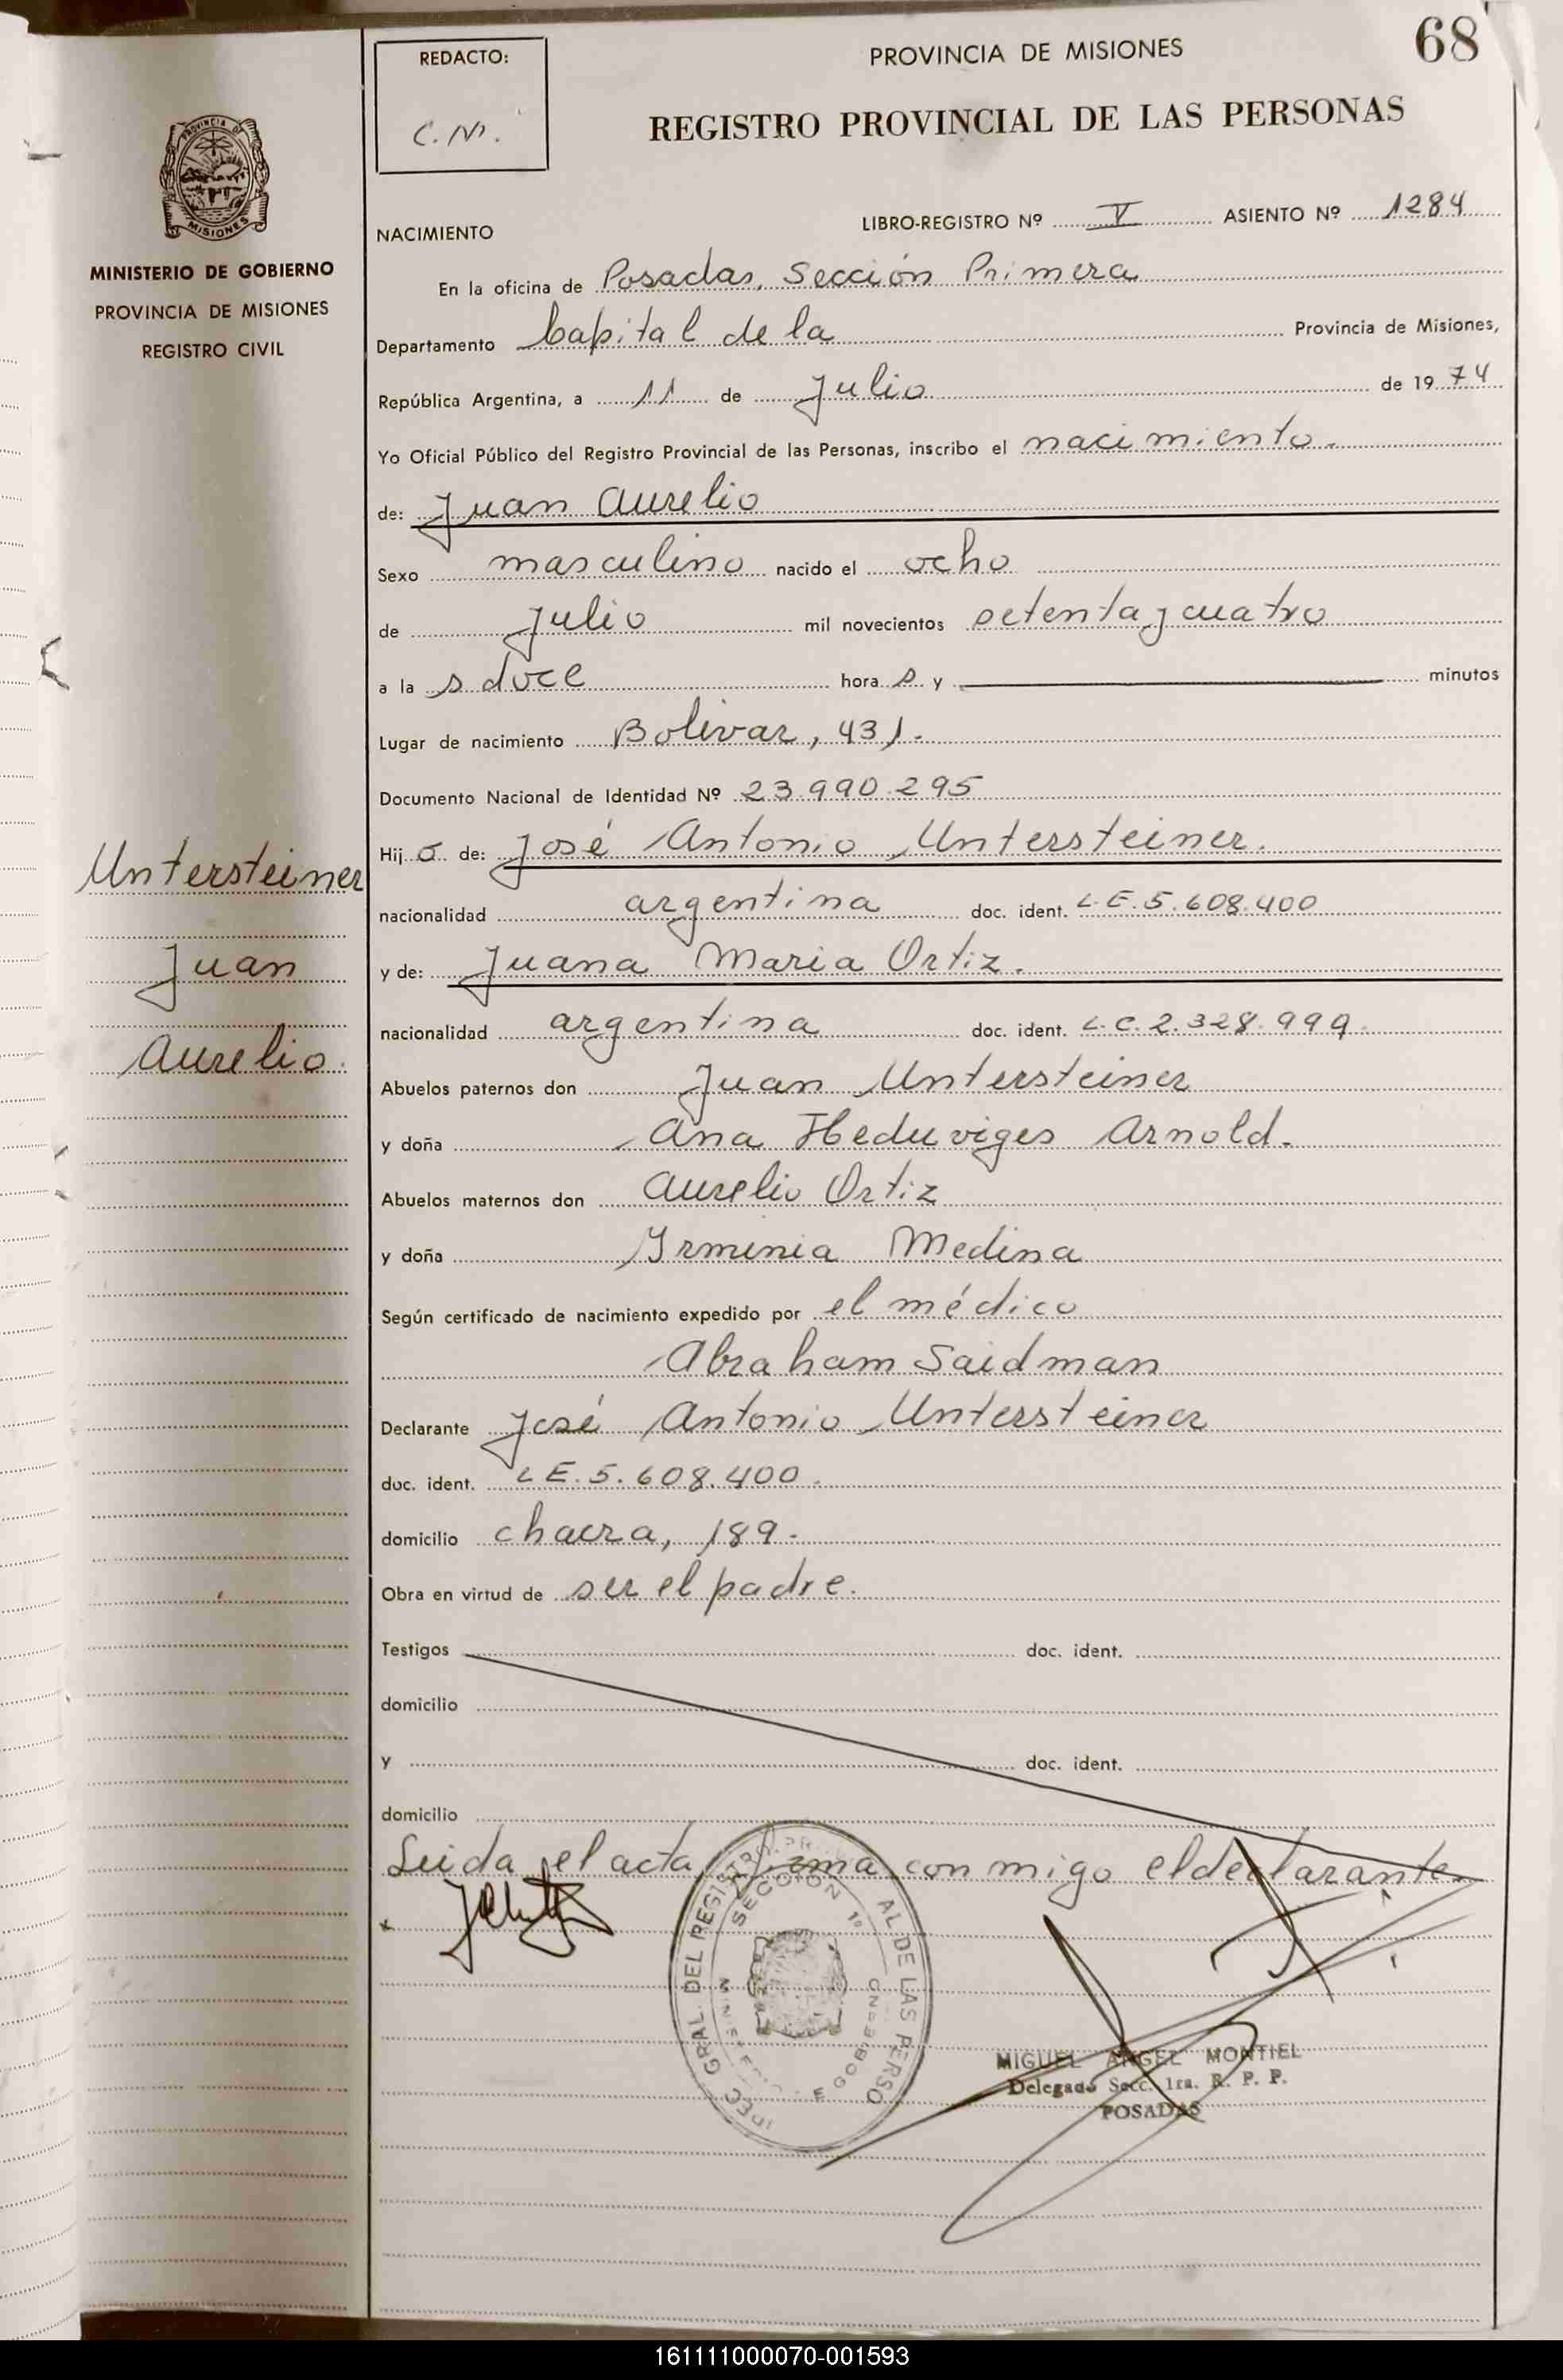 68
REDACTO:
C.N.
PROVINCIA DE MISIONES
REGISTRO PROVINCIAL DE LAS PERSONAS
PROVINCIA DE
MISIONES
MINISTERIO DE GOBIERNO
PROVINCIA DE MISIONES
REGISTRO CIVIL
NACIMIENTO
LIBRO-REGISTRO Nº V ASIENTO Nº 1284
En la oficina de Posadas, Sección Primera
Departamento Capital de la Provincia de Misiones,
República Argentina, a 11 de Julio de 1974
Yo Oficial Público del Registro Provincial de las Personas, inscribo el nacimiento.
de: Juan Aurelio
Sexo masculino nacido el ocho
de Julio mil novecientos setenta y cuatro
a la s doce hora s y minutos
Lugar de nacimiento Bolivar, 431.
Documento Nacional de Identidad Nº 23.990.295
Hij o de: José Antonio Untersteiner.
nacionalidad argentina doc. ident. L.E. 5.608.400
y de: Juana Maria Ortiz.
nacionalidad argentina doc. ident. L.C. 2.328.999.
Abuelos paternos don Juan Untersteiner
y doña Ana Heduviges Arnold.
Abuelos maternos don Aurelio Ortiz
y doña Irminia Medina
Según certificado de nacimiento expedido por el médico
Abraham Saidman
Declarante José Antonio Untersteiner
doc. ident. L E. 5.608.400.
domicilio chacra, 189.
Obra en virtud de ser el padre.
Testigos doc. ident.
domicilio
y doc. ident.
domicilio
Leida el acta, firma con migo el declarante.
Untersteiner
Juan
Aurelio.
SECCION 1ª
MIGUEL ANGEL MONTIEL
Delegado Secc. 1ra. R. P. P.
POSADAS
161111000070-001593